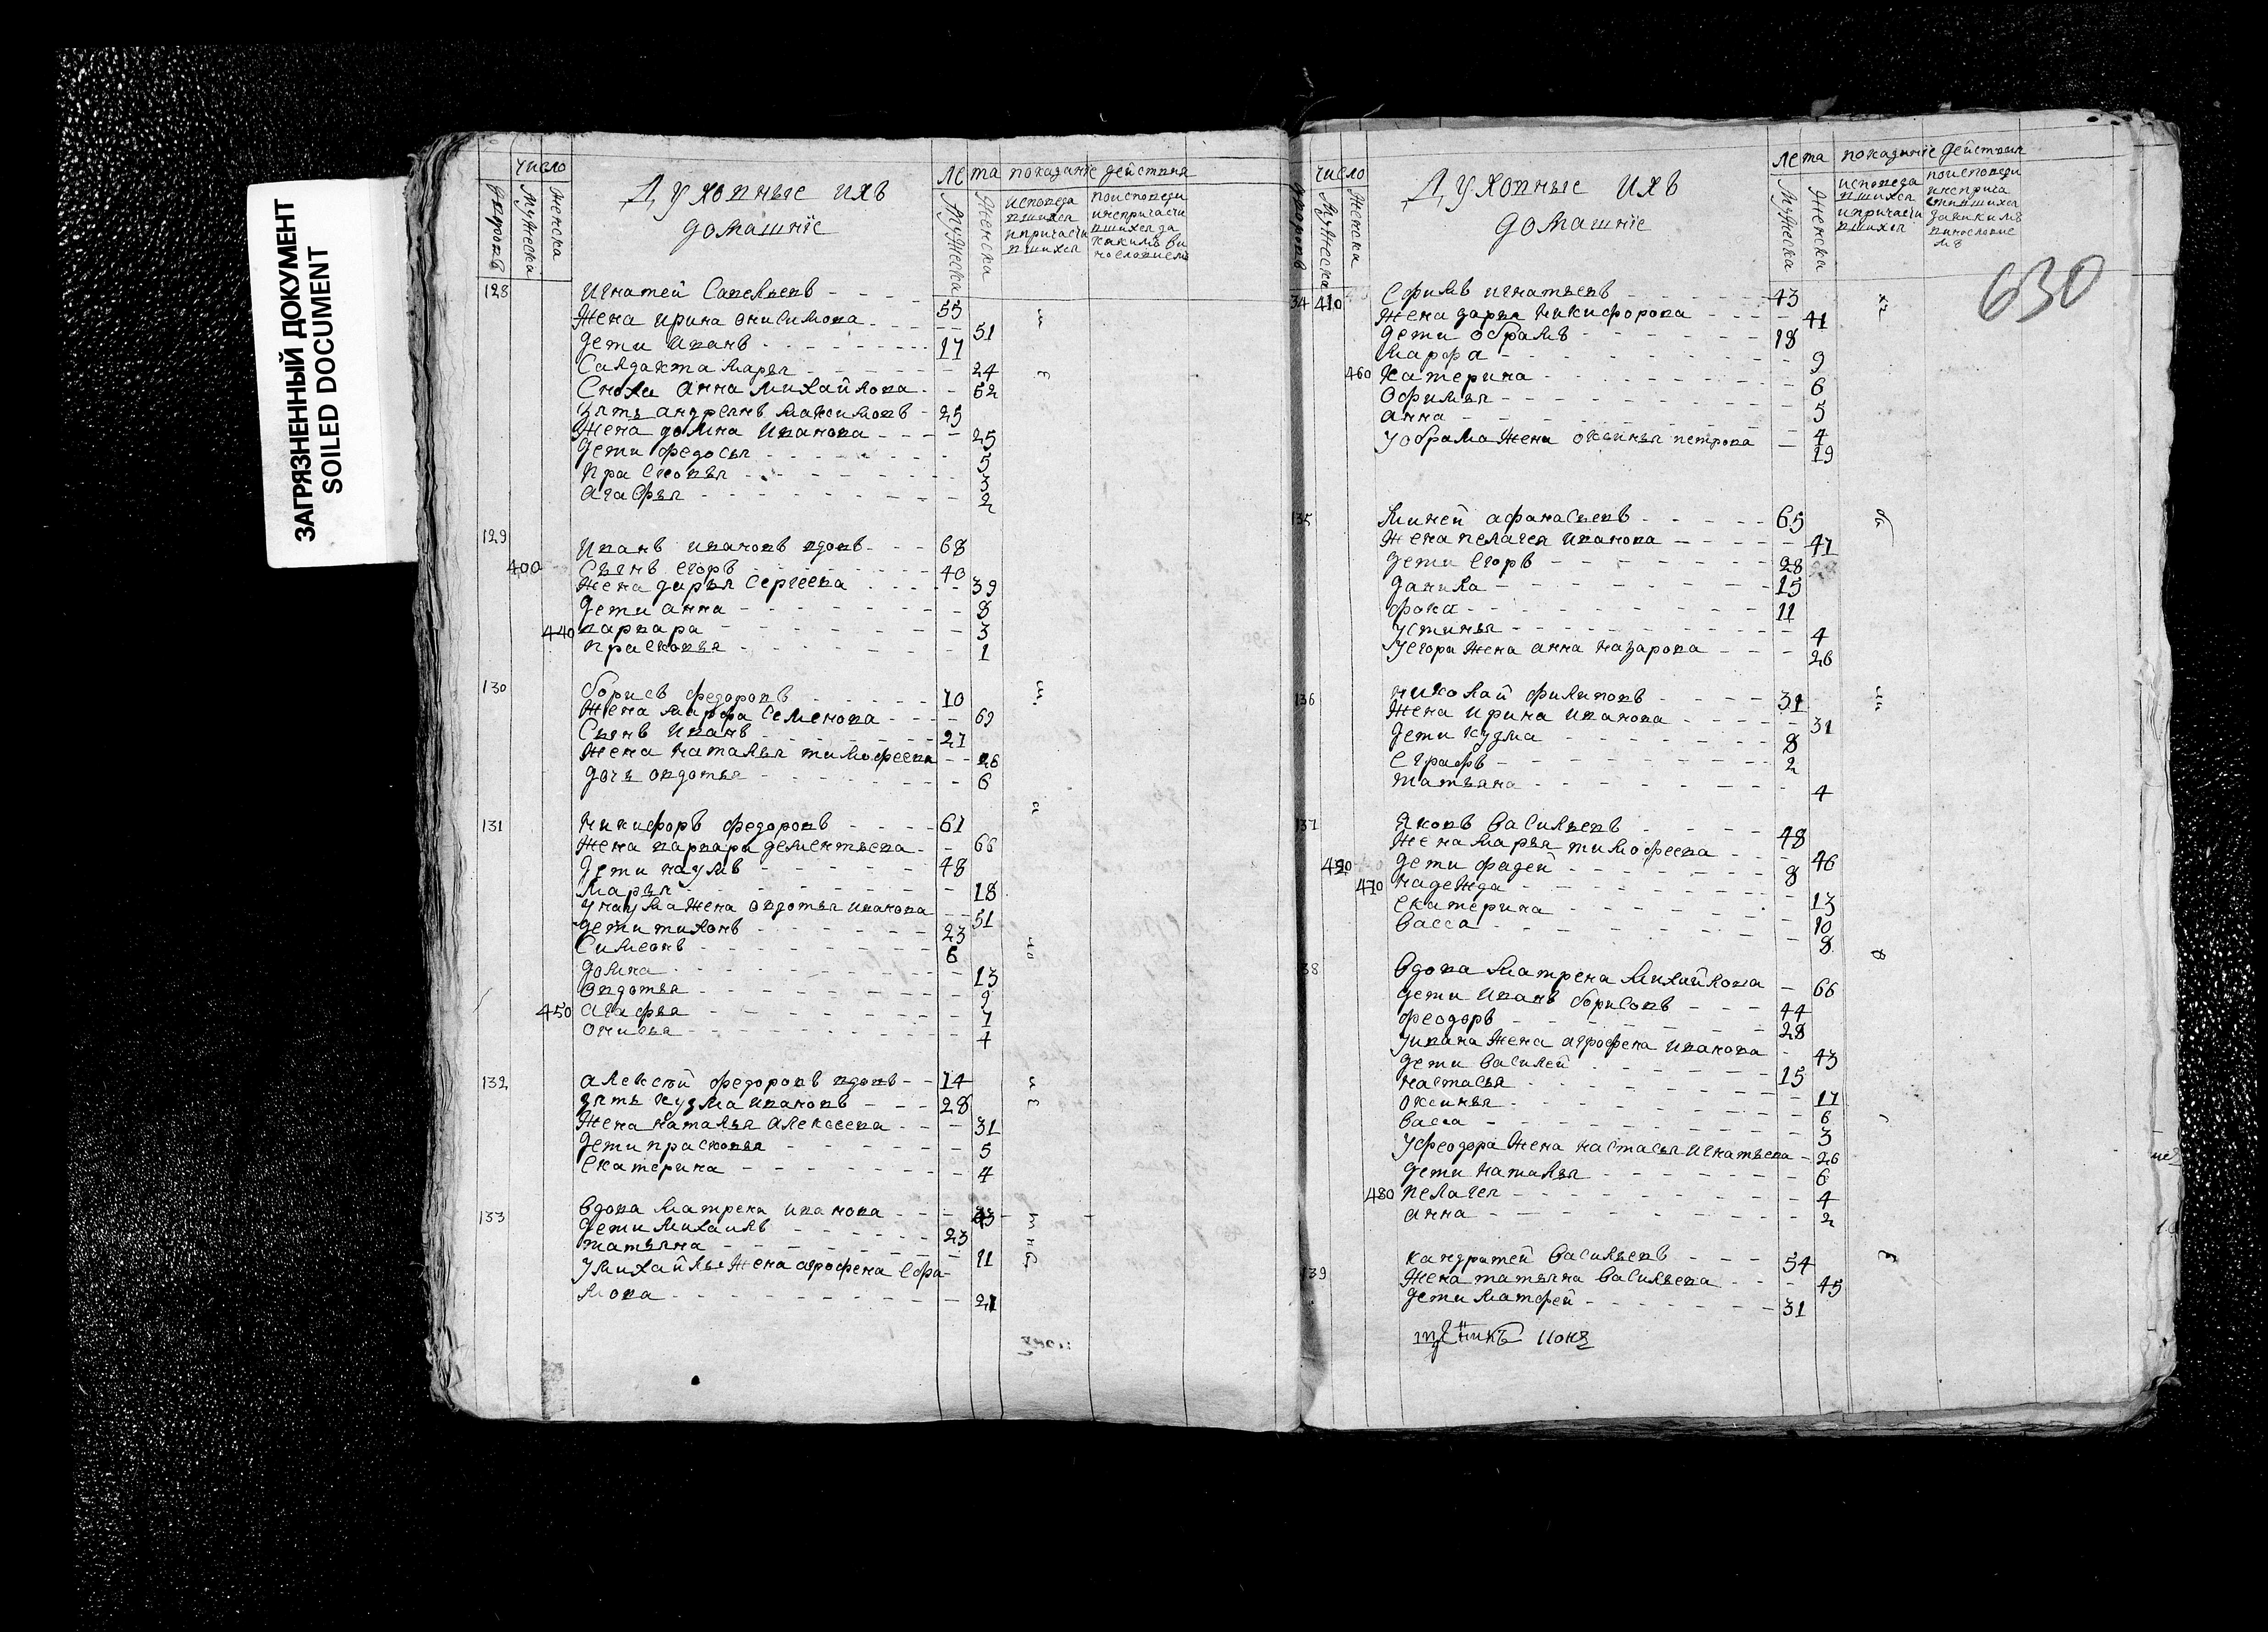 ЗАГРЯЗНЕННЫЙ ДОКУМЕНТ
SOILED DOCUMENT
число
дворовъ
Мужеска
женска
Духовные ихъ
домашніе
лета
Мужеска
Женска
показаніе действия
исповеда
вшихся
ипричасти
вшихся
поисповеди
инепричасти
вшихся за
какимъ ви
нословиемъ
128
Игнатей Савельевъ 55
Жена ирина онисимова 51
дети иванъ 17
Салдакта марья 24
Сноха анна михайлова 52
Зять андреянъ максимовъ 25
Жена домна иванова 25
дети федосья 5
прасковья 3
агафья 2
129
иванъ ивановъ вдовъ 68
400 Сынъ егоръ 40
Жена дарья Сергеева 39
дети анна 8
440 варвара 3
прасковья 1
130
борисъ федоровъ 70
Жена марфа Семенова 69
Сынъ иванъ 27
Жена наталья тимофеева 26
дочь овдотья 6
131
никифоръ федоровъ 61
Жена варвара дементьева 66
дети наумъ 48
марья 18
унаума жена овдотья иванова 51
дети тихонъ 23
Симеонъ 6
домна 13
Овдотья 9
450 агафья 7
онисья 4
132
алексей федоровъ вдовъ 74
зять кузма ивановъ 28
Жена наталья алексеева 31
дети прасковья 5
екатерина 4
133
Вдова матрена иванова 43
дети михаилъ 23
татьяна 11
умихайлы жена аграфена ефи
мова 21
число
дворовъ
Мужеска
Женска
Духовные ихъ
домашніе
Лета
Мужеска
Женска
показаніе действия
исповеда
вшихся
ипричасти
вшихся
поисповеди
инеприча
стившихся
закакимъ
винословие
мъ
630
34 410 Ефимъ игнатьевъ 43
Жена дарья никифорова 41
дети обрамъ 18
Марфа 9
460 Катерина 6
Офимья 5
анна 4
уобрама жена оксинья петрова 19
135
Миней афанасьевъ 65
Жена пелагея иванова 47
дети егоръ 28
данила 15
фока 11
устинья 4
уегора жена анна назарова 26
136
николай филиповъ 31
Жена ирина иванова 31
дети кузма 8
еграфъ 2
татьяна 4
137
Яковъ Васильевъ 48
Жена марья тимофеева 46
420 дети фадей 8
470 надежда 13
екатерина 10
васса 8
38
Вдова матрена михайлова 66
дети иванъ борисовъ 44
феодоръ 28
уивана жена аграфена иванова 43
дети василей 15
настасья 17
оксинья 6
васса 3
уфеодора жена настасья игнатьева 26
дети наталья 6
480 пелагея 4
анна 2
139
кандратей Васильевъ 54
Жена татьяна Васильева 45
дети матфей 31
иона